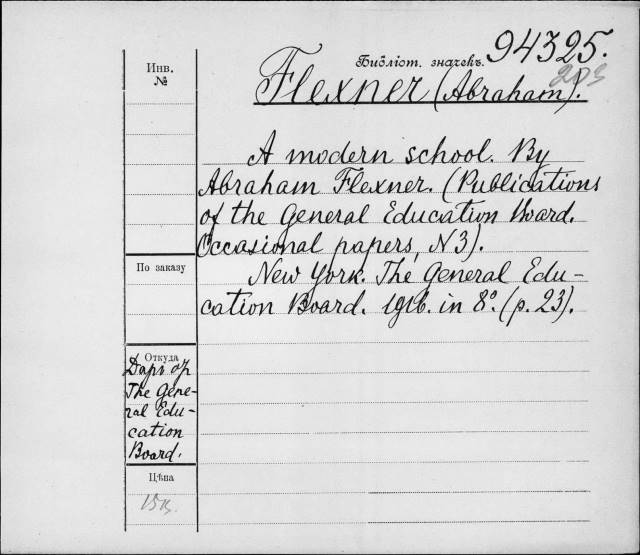 94325.
Инв.
№
Библіот. значекъ.
Flexner (Abraham).
A modern school. By
Abraham Flexner. (Publications
of the General Education Board.
Occasional papers, N3).
По заказу
New York. The General Edu-
cation Board. 1916. in 8°. (p. 23).
Откуда
Даръ of
The Gene-
ral Edu-
cation
Board.
Цѣна